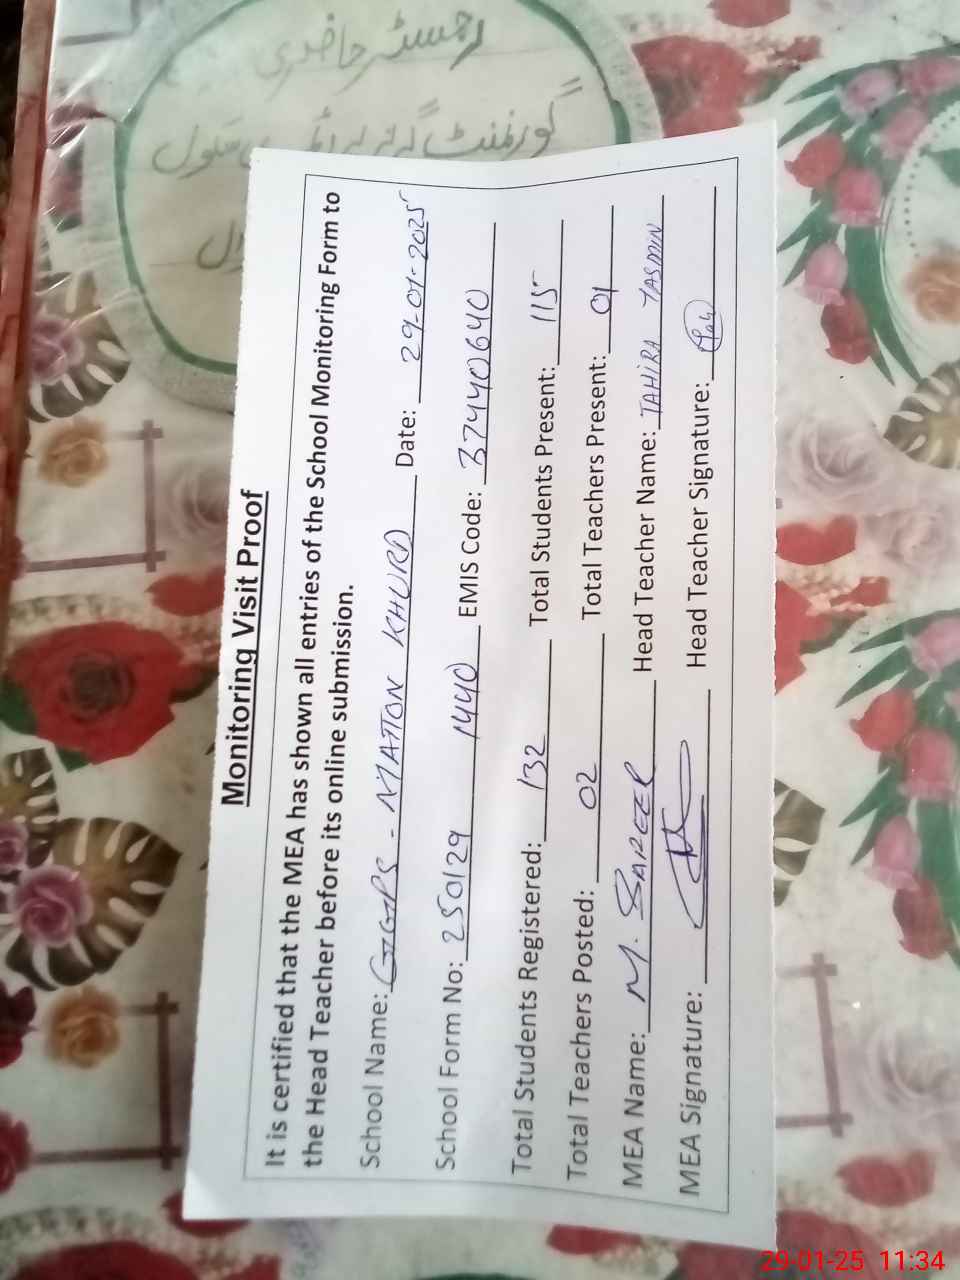 رجسٹر حاضری
گورنمنٹ گرلز پرائمری سکول
Monitoring Visit Proof
It is certified that the MEA has shown all entries of the School Monitoring Form to
the Head Teacher before its online submission.
School Name: GGPS - MATTON KHURD Date: 29-01-2025
School Form No: 250129 1440 EMIS Code: 37440640
Total Students Registered: 132 Total Students Present: 115
Total Teachers Posted: 02 Total Teachers Present: 01
MEA Name: M. SAFEER Head Teacher Name: TAHIRA YASMIN
MEA Signature: Head Teacher Signature:
29-01-25 11:34